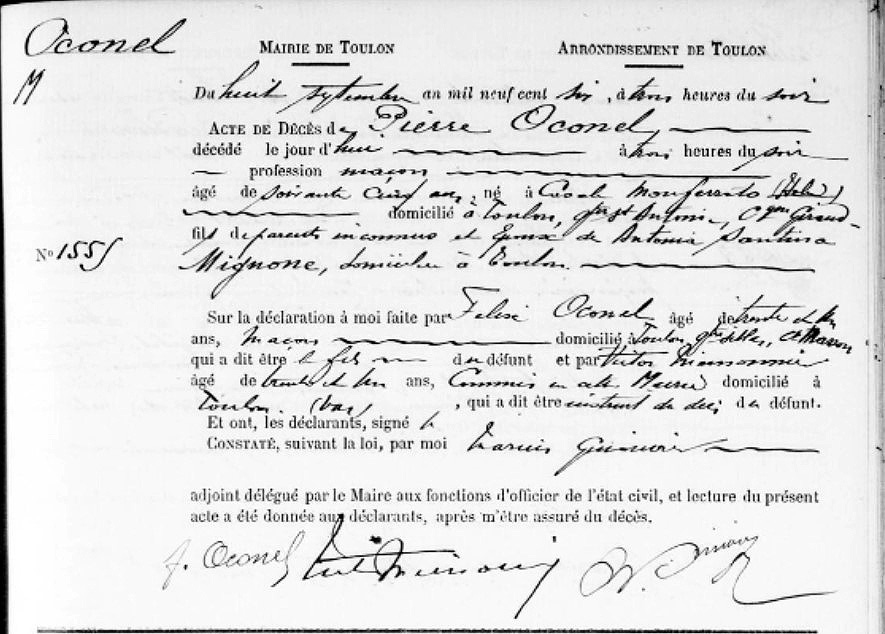 Oconel
MAIRIE DE TOULON ARRONDISSEMENT DE TOULON
M
Du huit septembre an mil neuf cent six, à trois heures du soir
ACTE DE DÉCÈS de Pierre Oconel,
décédé le jour d'hui à trois heures du soir
profession maçon
âgé de soixante cinq ans, né à Casale Monferrato (Italie)
domicilié à Toulon, qer St Antoine, Con Giraud
fils de parents inconnus et époux de Antonia Santina
No 1555
Mignone, domiciliée à Toulon
Sur la déclaration à moi faite par Felix Oconel âgé de trente et un
ans, maçon domicilié à Toulon,
qui a dit être le fils du défunt et par Victor
âgé de trente et un ans, Commis en cette Mairie domicilié à
Toulon (Var), qui a dit être instruit du décès du défunt.
Et ont, les déclarants, signé
CONSTATÉ, suivant la loi, par moi Marius
adjoint délégué par le Maire aux fonctions d'officier de l'état civil, et lecture du présent
acte a été donnée aux déclarants, après m'être assuré du décès.
f. Oconel